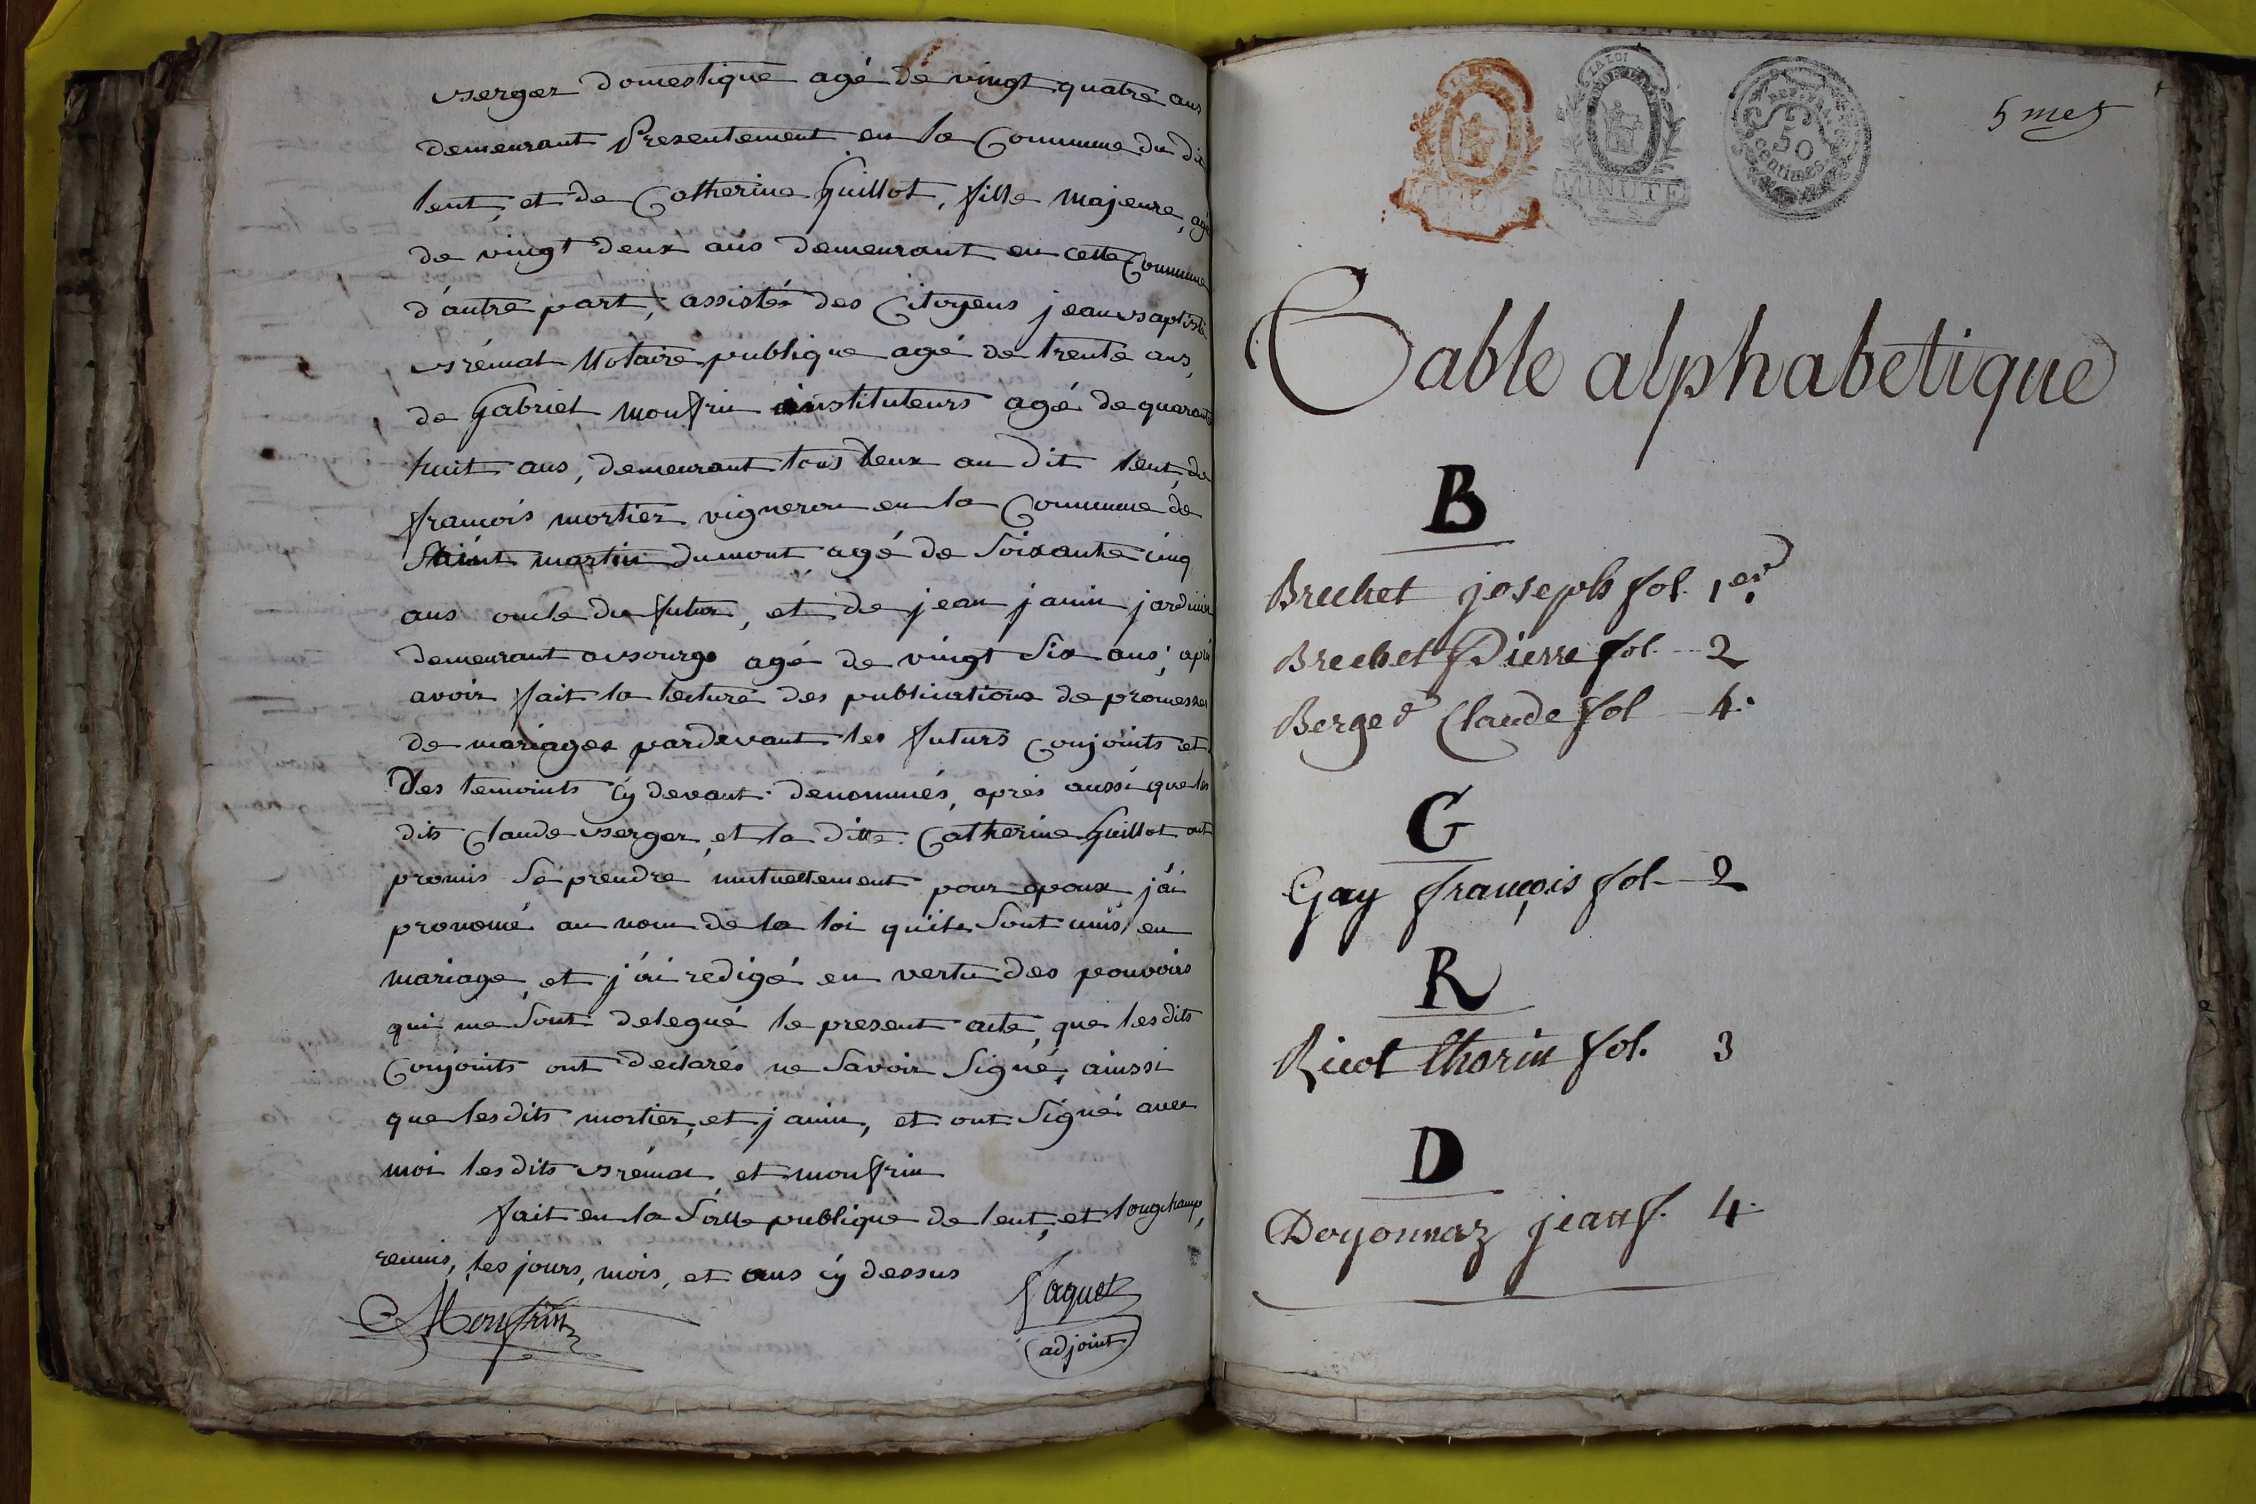 Berger domestique agé de vingt quatre ans
demeurant Presentement en la Commune du dit
lent, et de Catherine Guillot, fille majeure, agé
de vingt deux ans demeurant en cette Commune
d'autre part, assistés des Citoyens jean Baptiste
Brémat Notaire publique agé de trente ans,
de Gabriel monfrin instituteurs agé de quarante
huit ans, demeurant tous deux au dit lent, de
francois mortier vigneron en la Commune de
Saint martin dumont agé de Soixante cinq
ans oncle du futur, et de jean janin jardinier
demeurant abourg agé de vingt Six ans; après
avoir fait la lecture des publications de promesses
de mariages pardevant les futurs Conjoints et
des temoints cÿ devant denommés, aprés aussi que les
dits Claude Berger, et la ditte Catherine Guillot ont
promis Se prendre mutuellement pour epoux j'ai
prononcé au nom de la loi qu'ils Sont unis en
mariage, et j'ai redigé en vertu des pouvoirs
qui me Sont delegué le present acte, que les dits
Conjoints ont declarés ne Savoir Signé, ainssi
que les dits mortier, et janin, et ont Signé avec
moi les dits Brémat et monfrin
fait en la Salle publique de lent, et longchamp,
reunis, les jours, mois, et ans cÿ dessus
Monfrin
Jaquet
adjoint
LA LOI
MINUTE
50
centimes
5 me
Table alphabetique
B
Brechet joseph fol. 1er
Brechet Pierre fol. 2
Berger Claude fol 4.
G
Gay françois fol 2
R
Ricol thorin fol. 3
D
Doyonnaz jean f. 4.